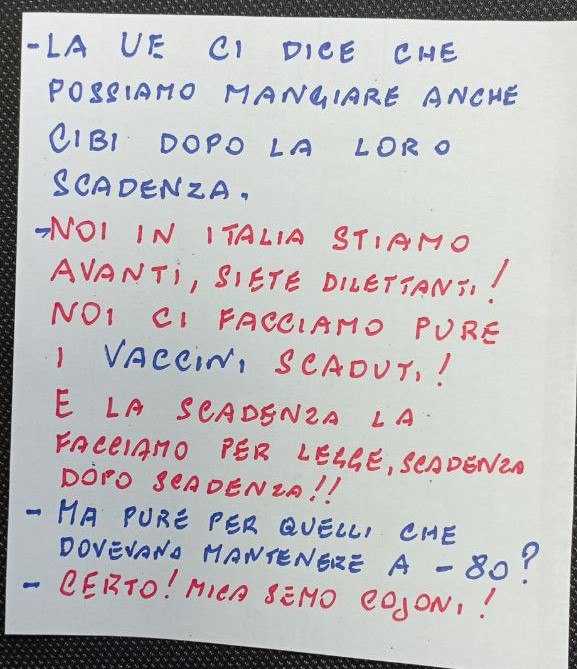 -LA UE CI DICE CHE
POSSIAMO MANGIARE ANCHE
CIBI DOPO LA LORO
SCADENZA.
-NOI IN ITALIA STIAMO
AVANTI, SIETE DILETTANTI!
NOI CI FACCIAMO PURE
I VACCINI SCADUTI!
E LA SCADENZA LA
FACCIAMO PER LEGGE, SCADENZA
DOPO SCADENZA!!
- MA PURE PER QUELLI CHE
DOVEVANO MANTENERE A -80?
- CERTO! MICA SEMO COJONI!